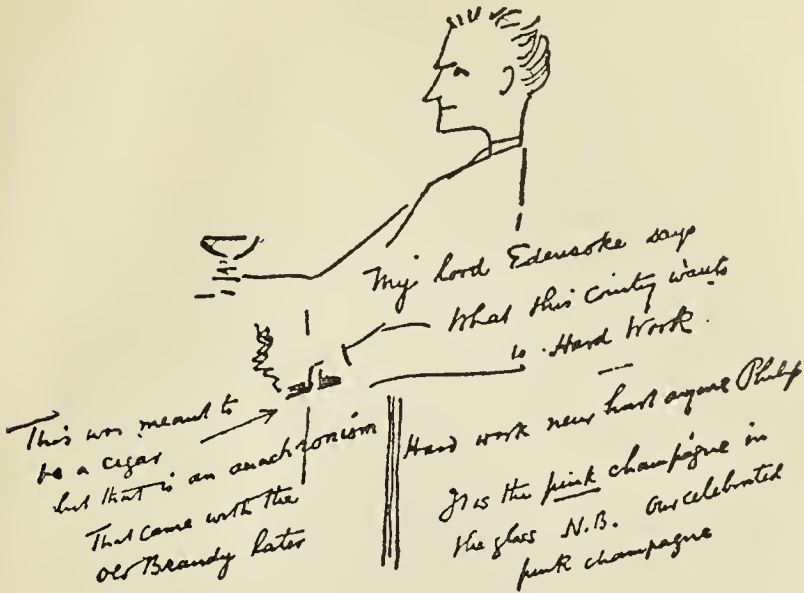 My Lord Edensoke says
What this country wants
is Hard Work.
This was meant to
be a cigar
but that is an anachronism
That came with the
old Brandy later
Hard work never hurt anyone Philip
It is the pink champagne in
the glass N.B. Our celebrated
pink champagne